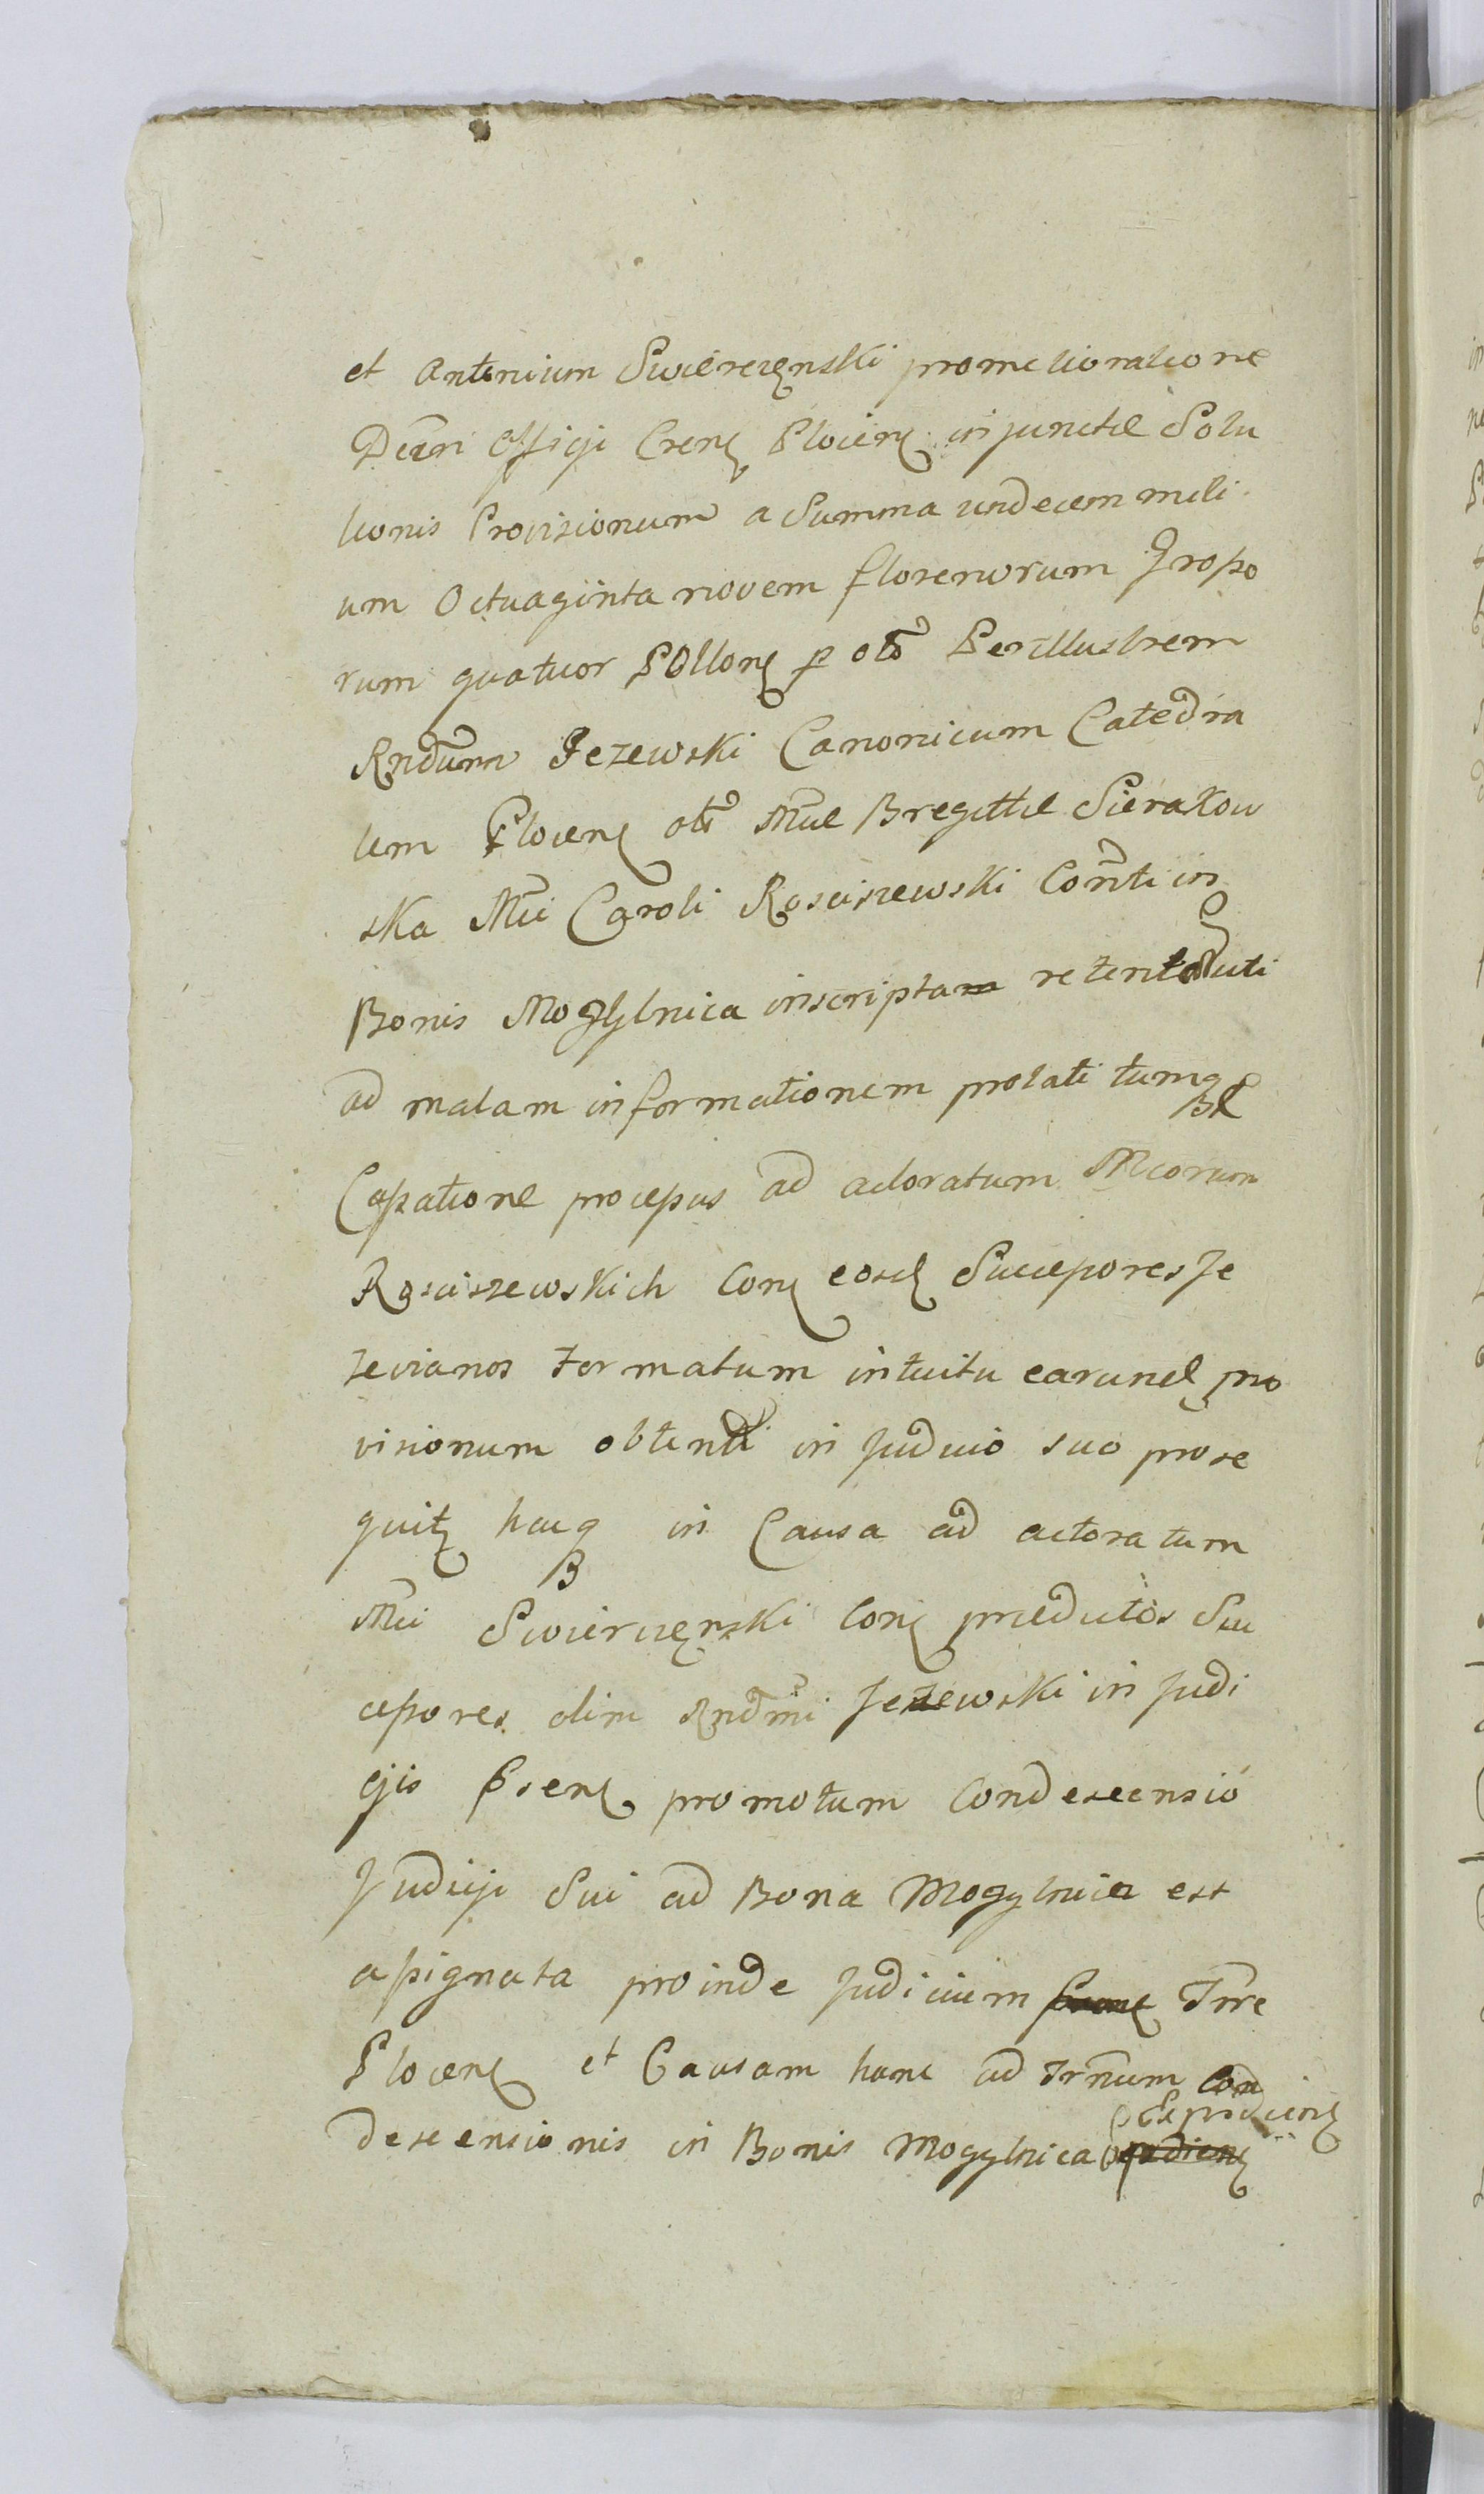 et Antonium Swierczęnski pro melioratione
Decreti Officij Crens Plocens injunctæ Solu
tionis Provisionum a Summa undecem mili
um Octuaginta novem florenorum Grosso
rum quatuor POllons p olim Perillustrem
Rndum Jezewski Canonicum Catedra
lem Plocens olim Mcæ Bregittæ Sierakow
ska Mci Caroli Rosciszewski Conti in
Bonis Mogÿlnica inscripta retent uti
ad malam informationem prolati tumq
Cassatione processus ad actoratum Mcorum
Rosciszewskich Cons eosd Successores Je
zevianos formatum intuitu earund pro
visionum obtenti in Judicio suo prose
quitz hacq in Causa ad actoratum
Mci Swierczęnski Cons prædictos Suc
cessores olim Rndmi Jezewski in Judi
cjis Psens promotum Condescensio
Judicij Sui ad Bona Mogylnica est
assignata proinde Judicium Trre
Plocens et Causam hanc ad Trnum Con
descensionis in Bonis Mogylnica Expediens